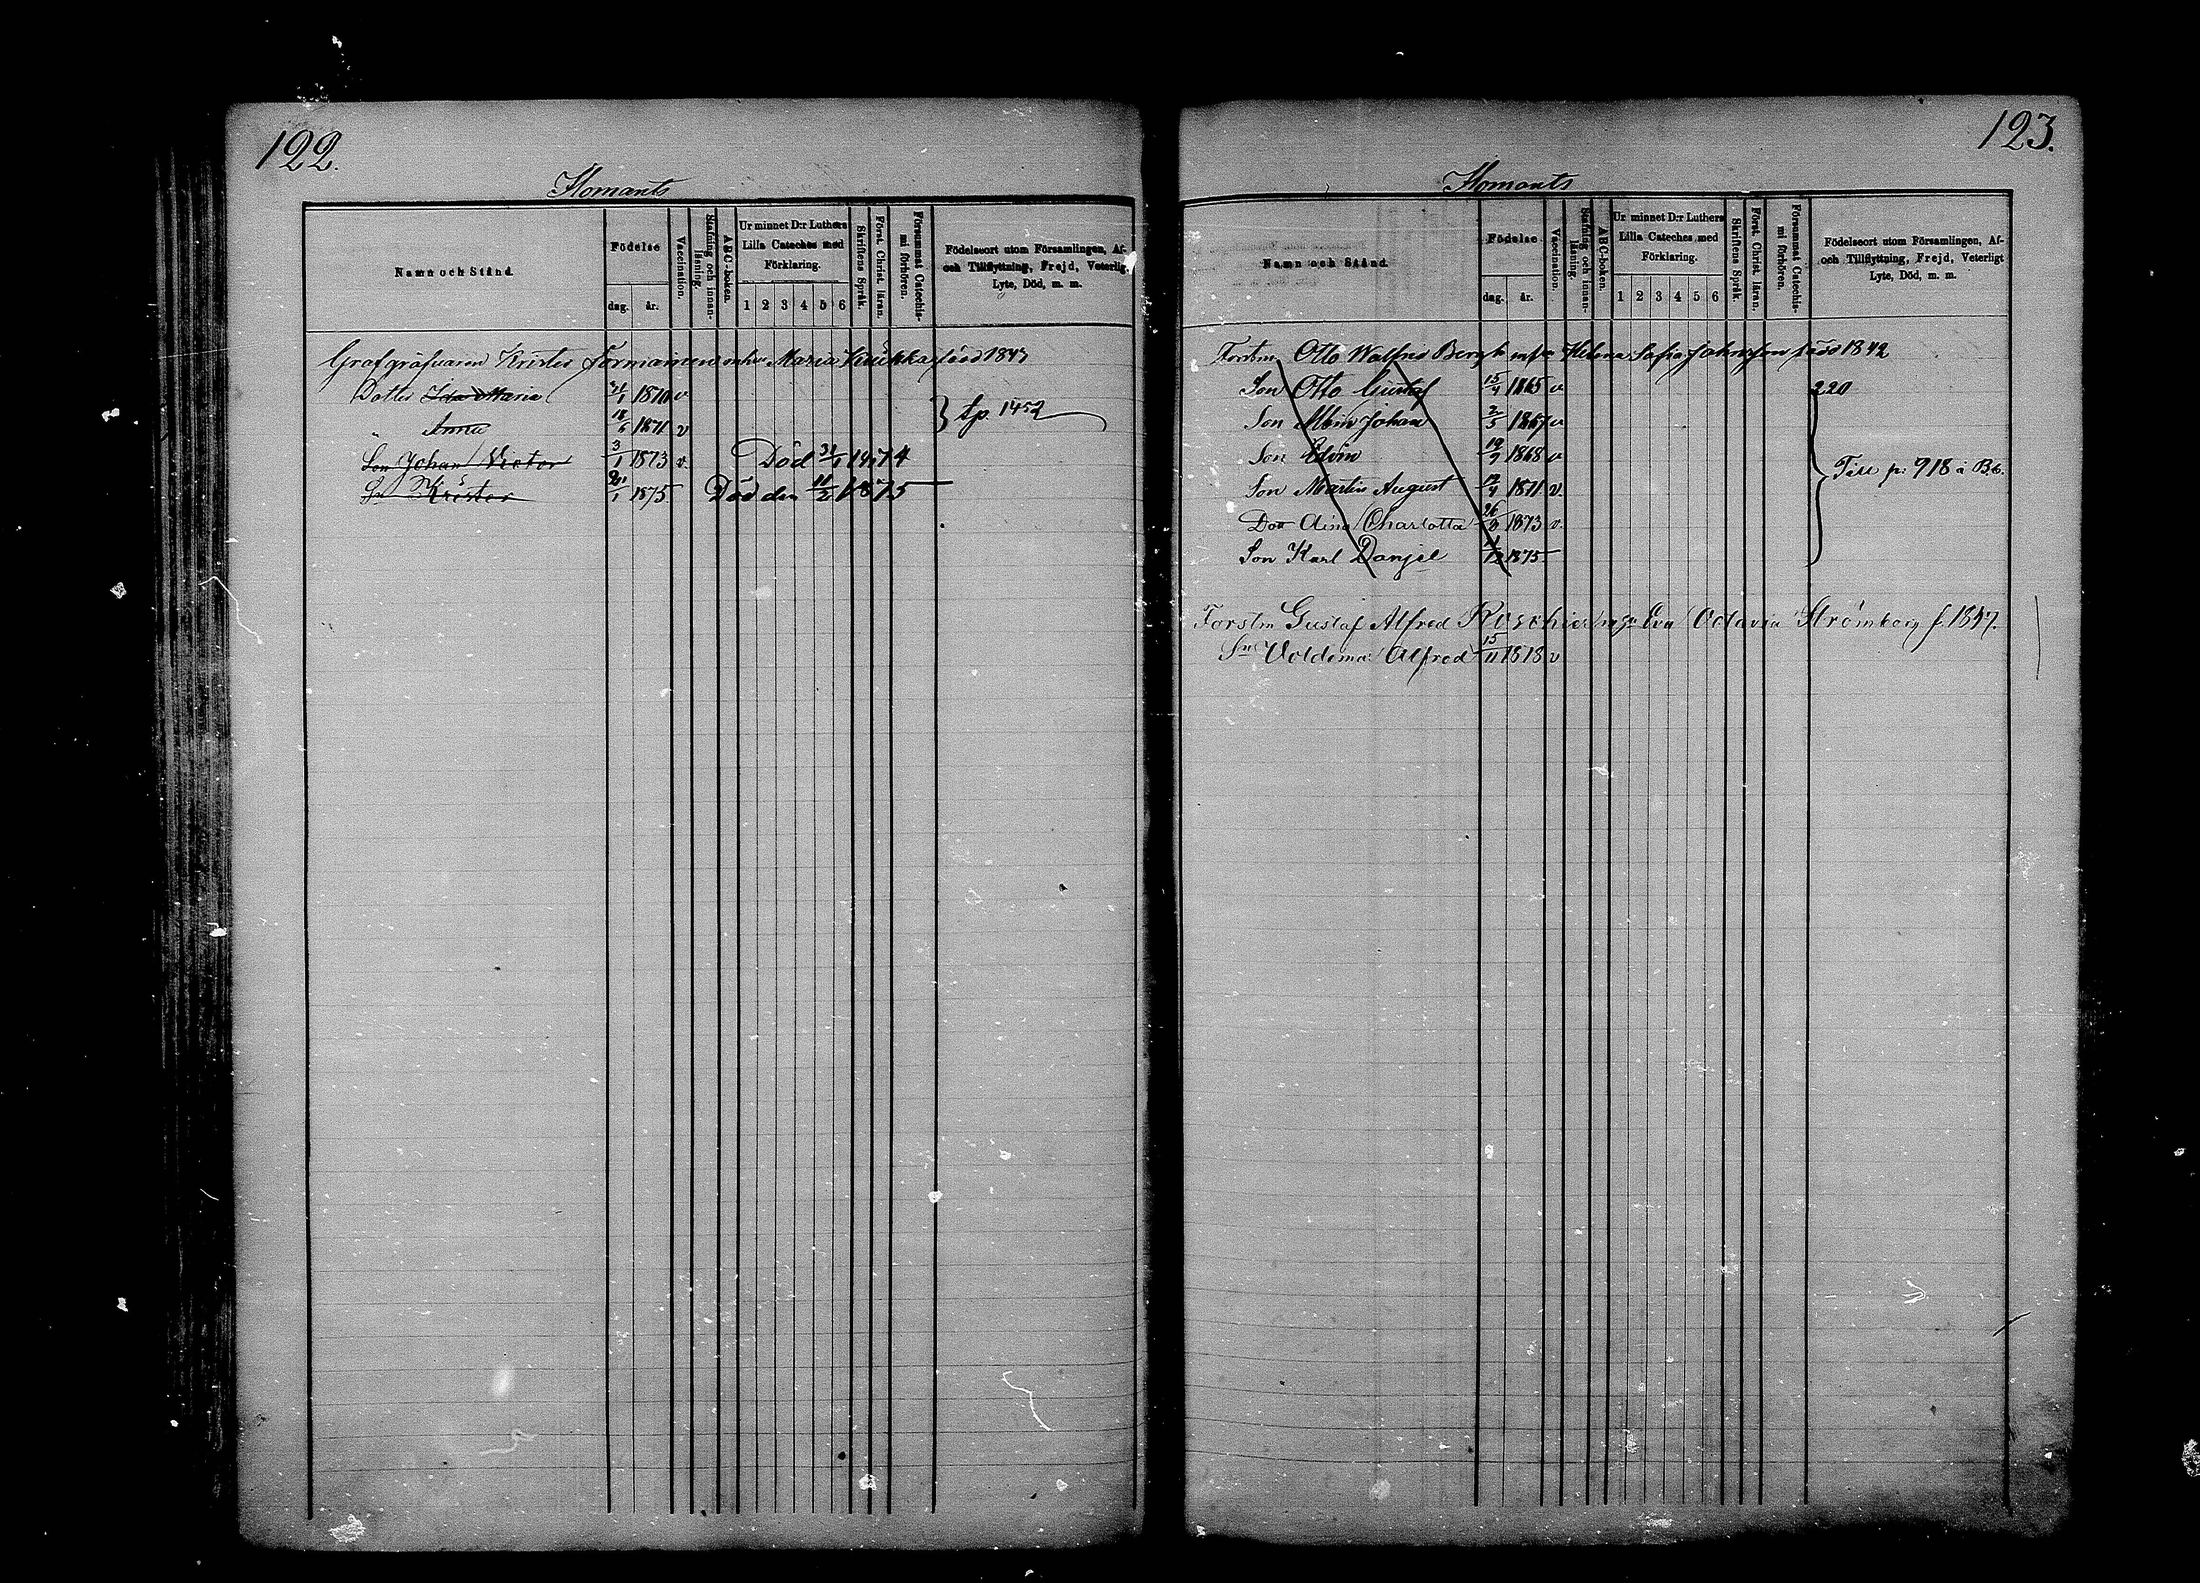 122.
Ilomants
Namn och Stånd.
Födelse
dag. år.
Vaccination.
Stafning och innan-läsning.
ABC-boken.
Ur minnet D:r Luthers Lilla Cateches med Förklaring.
1 2 3 4 5 6
Skriftens Språk.
Först. Christ. läran.
Försummat Catechis-mi förhören.
Födelseort utom Församlingen, Af- och Tillflyttning, Frejd, Veterligt Lyte, Död, m. m.
Grafgräfvaren Krister Formanen Maria född 1843
Dotter Ida Maria 1870 v
Anna 1871 v
} tp. 1452
Son Johan Victor 3/1 1873 v. Död
Sn Krister 1875 Död den 1875
123.
Ilomants
Namn och Stånd.
Födelse.
dag. år.
Vaccination.
Stafning och innan-läsning.
ABC-boken.
Ur minnet D:r Luthers Lilla Cateches med Förklaring.
1 2 3 4 5 6
Skriftens Språk.
Först. Christ. läran.
Försummat Catechis-mi förhören.
Födelseort utom Församlingen, Af- och Tillflyttning, Frejd, Veterligt Lyte, Död, m. m.
Forstm. Otto Walfrid Bergh Helena Sofia född 1842
Son Otto Gustaf 15/4 1865 v 220
Son Albin Johan 2/5 1867 v
Son Edvin 19/9 1868 v
Son Martin August 1871 v. } Till p: 918 i Bb.
Dott Aina Charlotta 26/8 1873 v.
Son Karl Danjel 1875
Forstm Gustaf Alfred Roschier Eva Octavia Strömborg f. 1847.
Sn Voldemar Alfred 15/11 1878 v